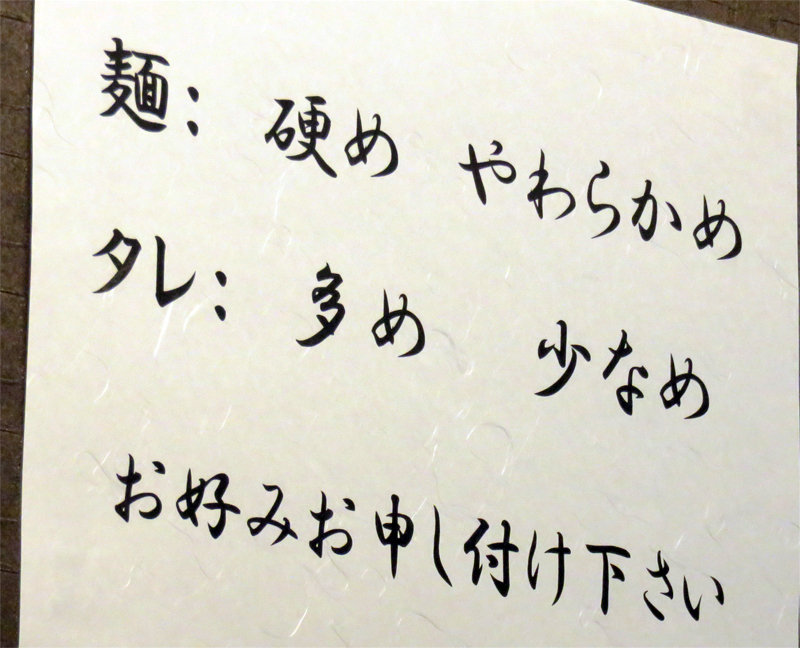 麺：硬め　やわらかめ
タレ：多め　少なめ
お好みお申し付け下さい